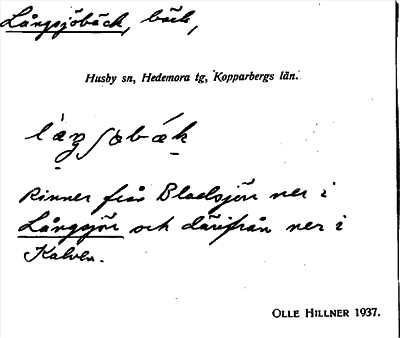 Långsjöbäck, bäck,
Husby sn, Hedemora tg, Kopparbergs län.
Rinner från Bladsjön ner i
Långsjön och därifrån ner i
Kalven.
OLLE HILLNER 1937.